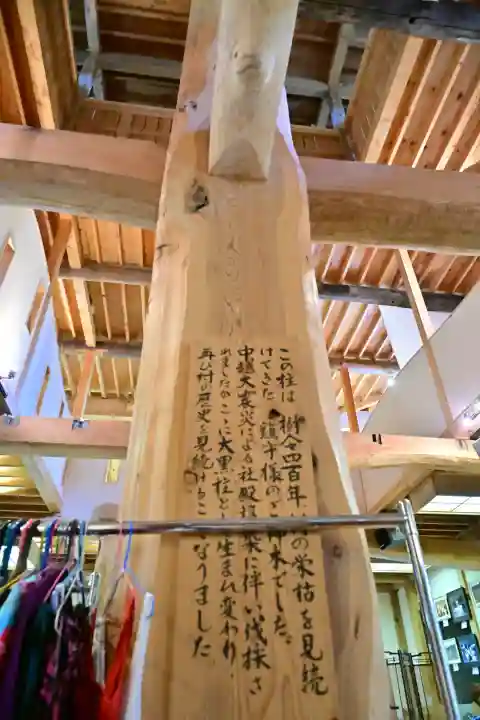 この柱は 樹令四百年の栄枯を見続
けてきた 鎮守様のご神木でした。
中越大震災による社殿築に伴い伐採さ
れましたがここに大黒柱と生まれ変わり
再び村の歴史を見続けることになりました。